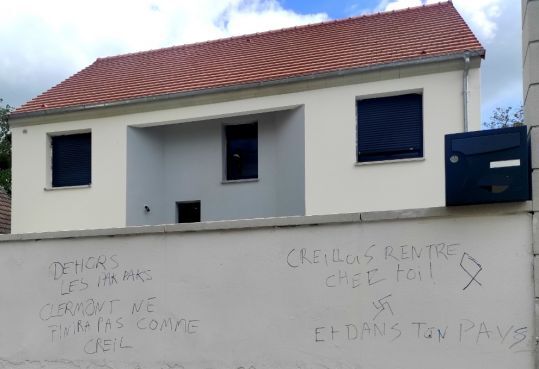 DEHORS
LES PAKPAKS
CLERMONT NE
FINIRA PAS COMME
CREIL
CREILLOIS RENTRE
CHEZ toi!
Et DANS TON PAYS